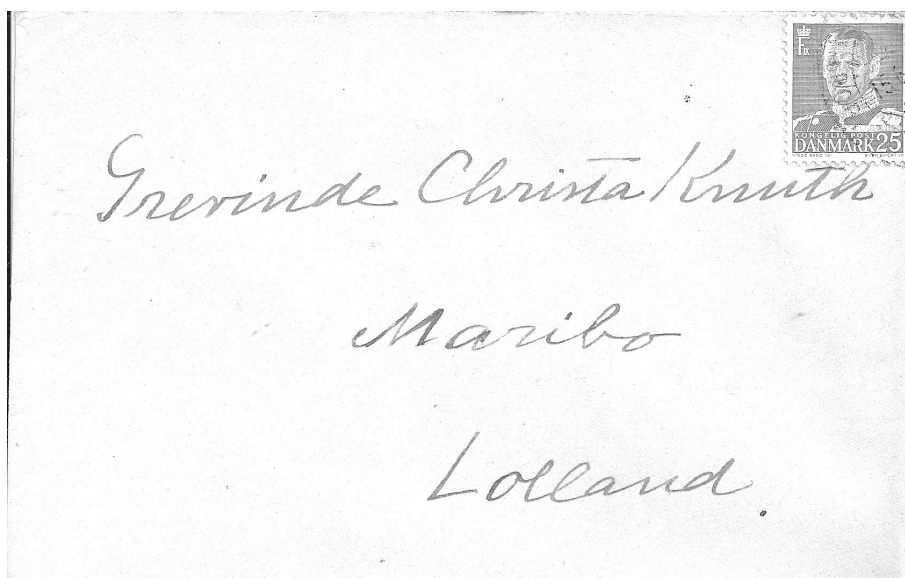 F IX
KONGELIG POST
DANMARK 25
Grevinde Christa Knuth
Maribo
Lolland.